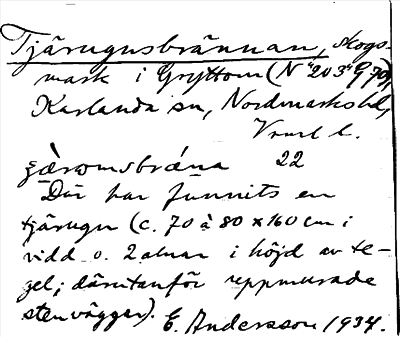 Tjärugnsbrännan, skogs-
mark i Gryttom (N "203" G 70),
Karlanda sn, Nordmarks hd,
Vrml l.
22
Där har funnits en
tjärugn (c. 70 à 80 x 160 cm i
vidd o. 2 alnar i höjd av te-
gel; därutanför uppmurade
stenväggar).
E. Andersson 1934.